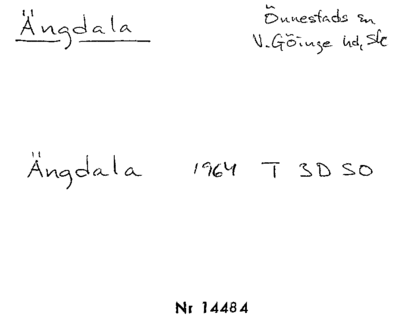 Ängdala
Önnestads sn
V. Göinge hd, Sk
Ängdala 1964 T 3D SO
Nr 14484